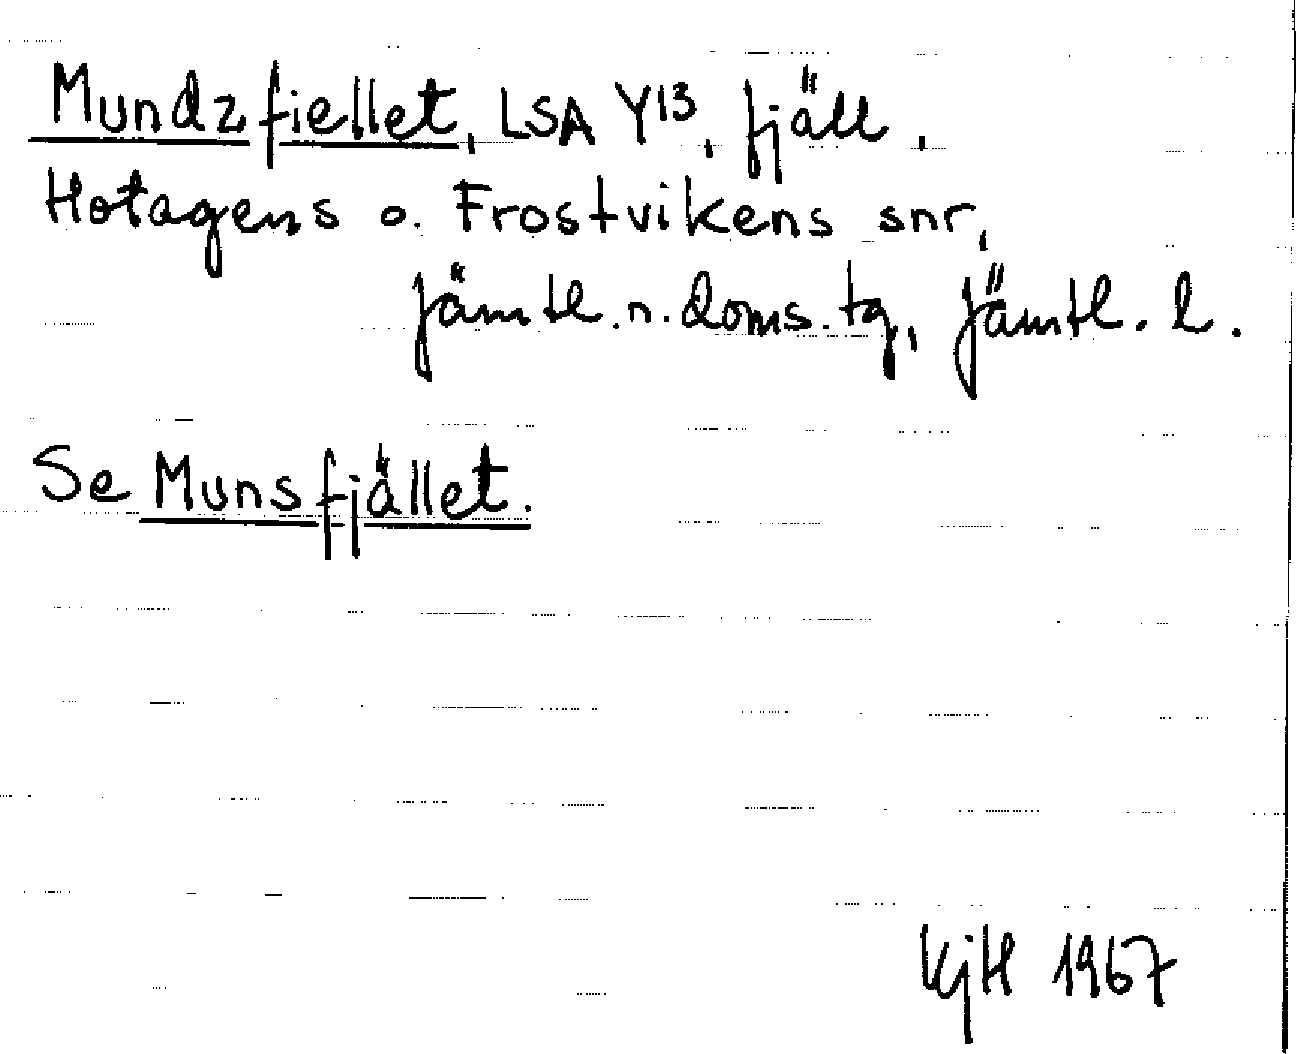 Mundzfiellet, LSA Y13, fjäll.
Hotagens o. Frostvikens snr,
Jämtl.n.doms.tg, Jämtl. l.
Se Munsfjället.
KjH 1967